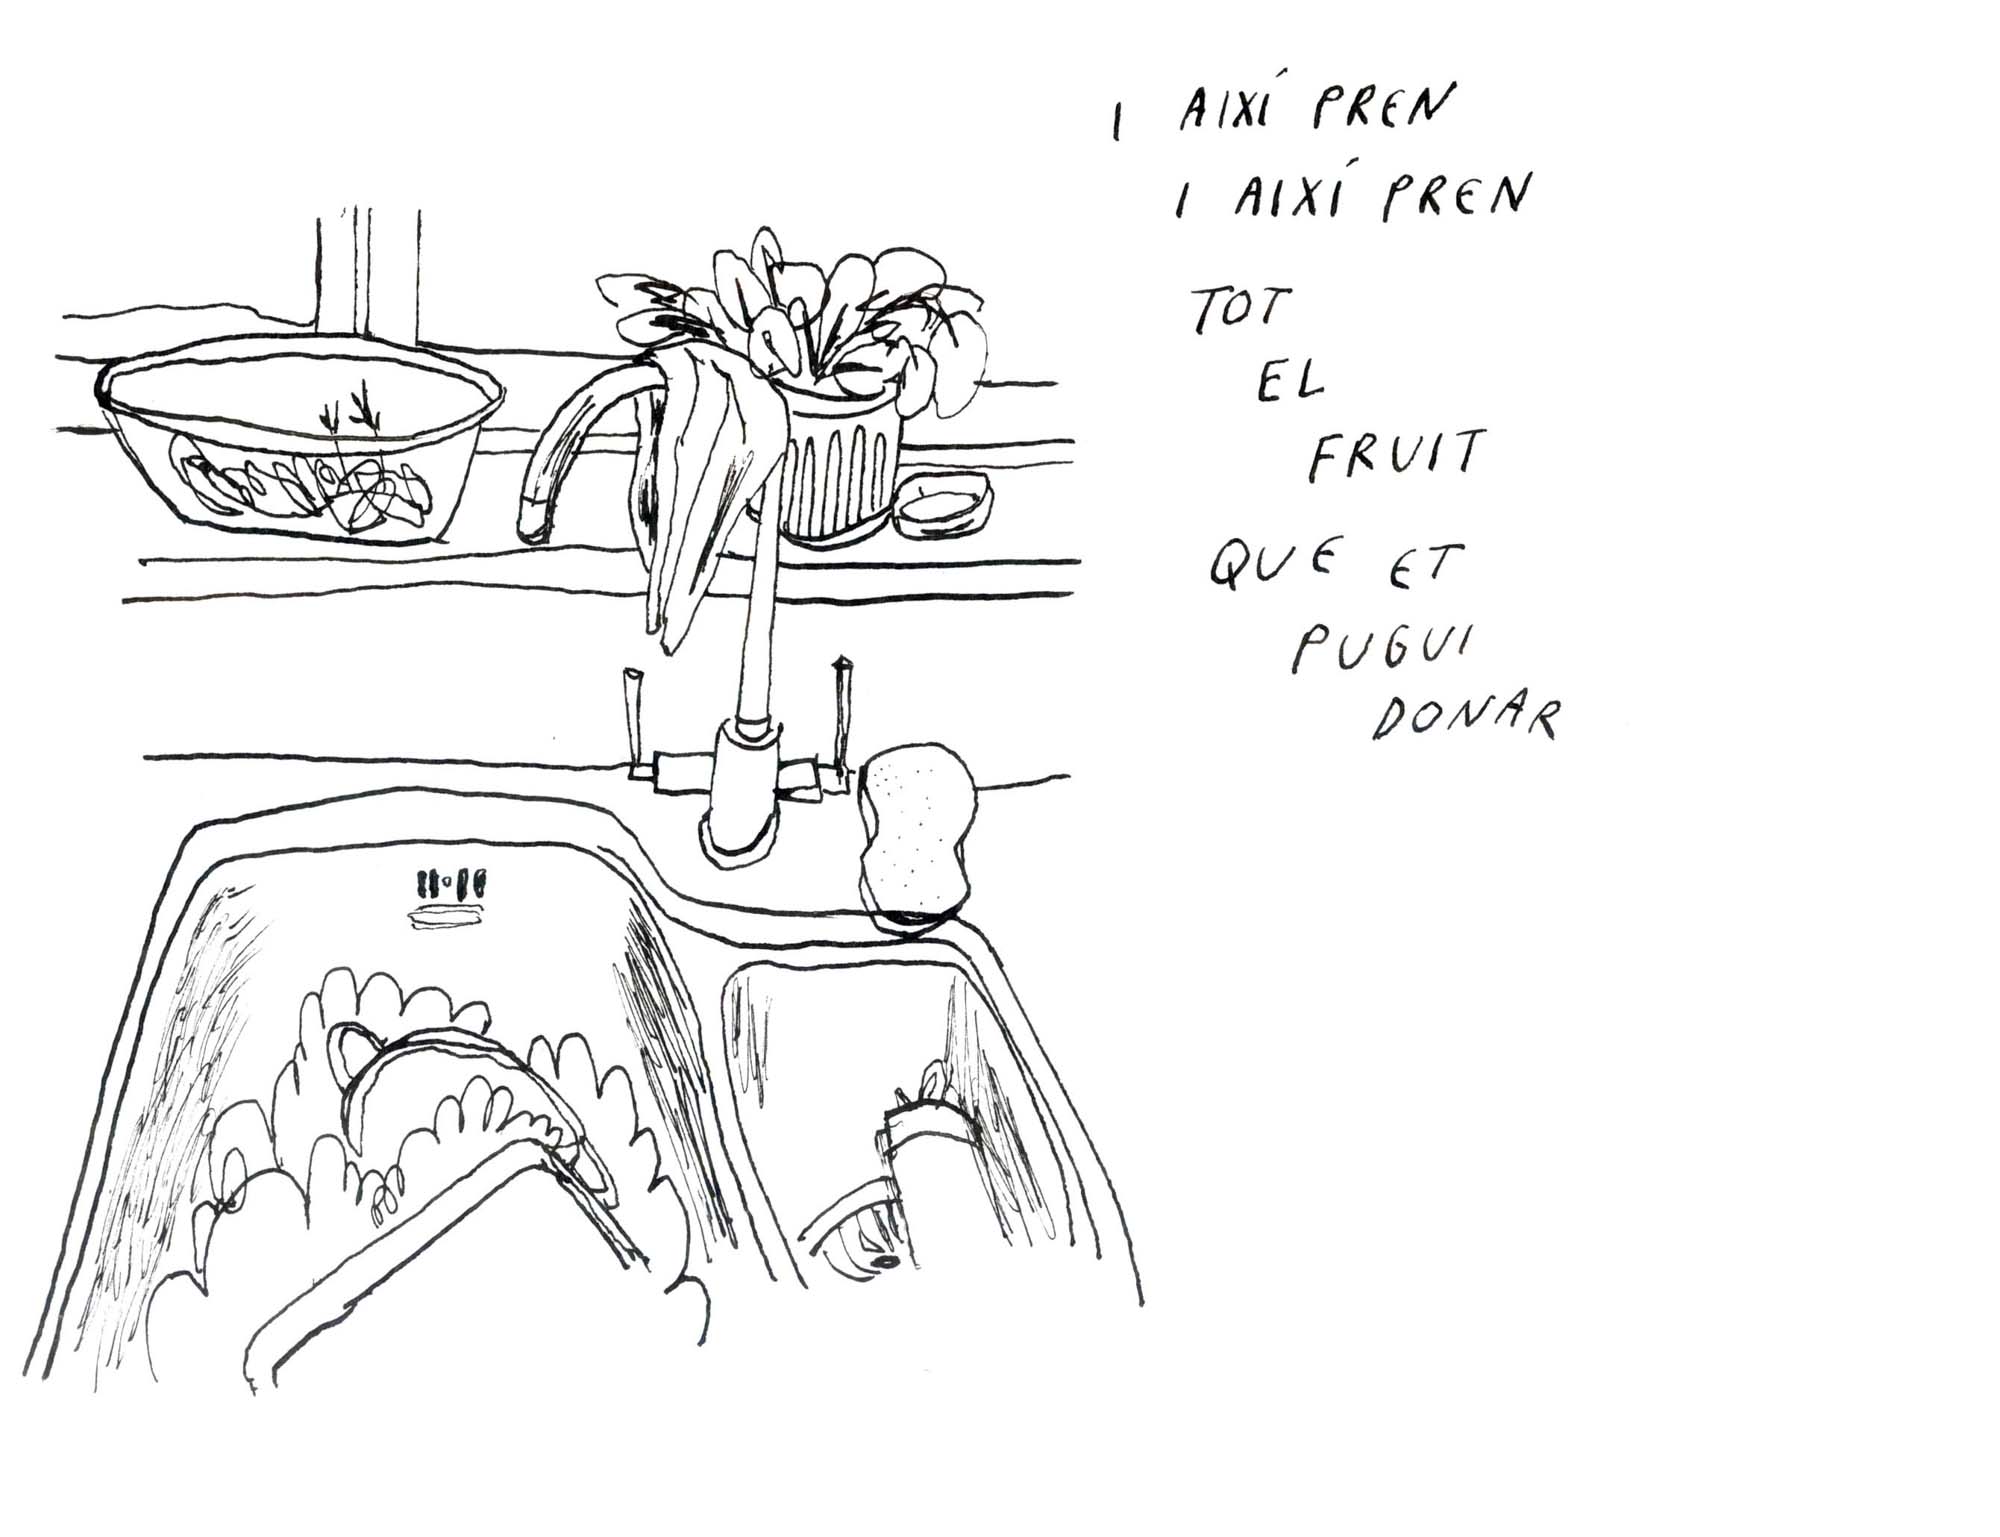 I AIXÍ PREN
I AIXÍ PREN
TOT
EL
FRUIT
QUE ET
PUGUI
DONAR